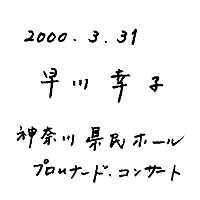 2000.3.31
早川 幸子
神奈川県民ホール
プロムナード・コンサート